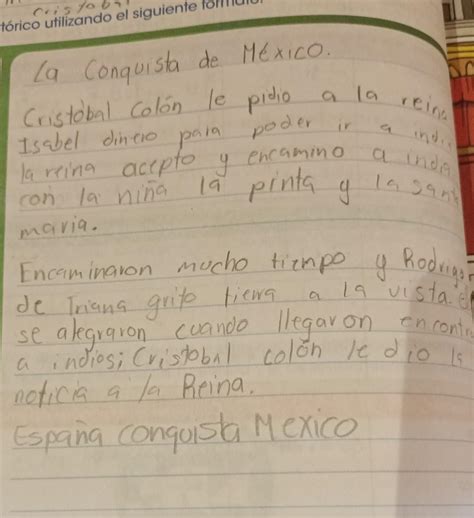 tórico utilizando el siguiente
La Conquista de México.
Cristobal Colón le pidio a la reina
Isabel dinero para poder ir a
la reina acepto y encamino a
con la niña la pinta y la
maria.
Encaminaron mucho tiempo y Rodrigo
de Triana grito tierra a la vista.
se alegraron cuando llegaron
a indios; Cristobal colón le dio la
noticia a la Reina.
España conquista Mexico